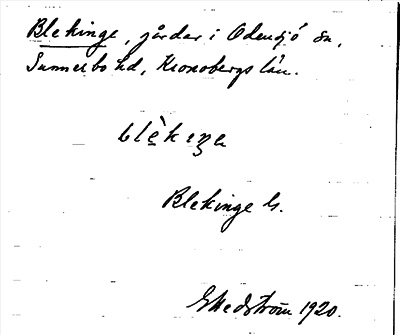 Blekinge, gårdar i Odensjö sn,
Sunnerbo hd, Kronobergs län.
blèkɪŋə
Blekinge G.
E Hedström 1920.